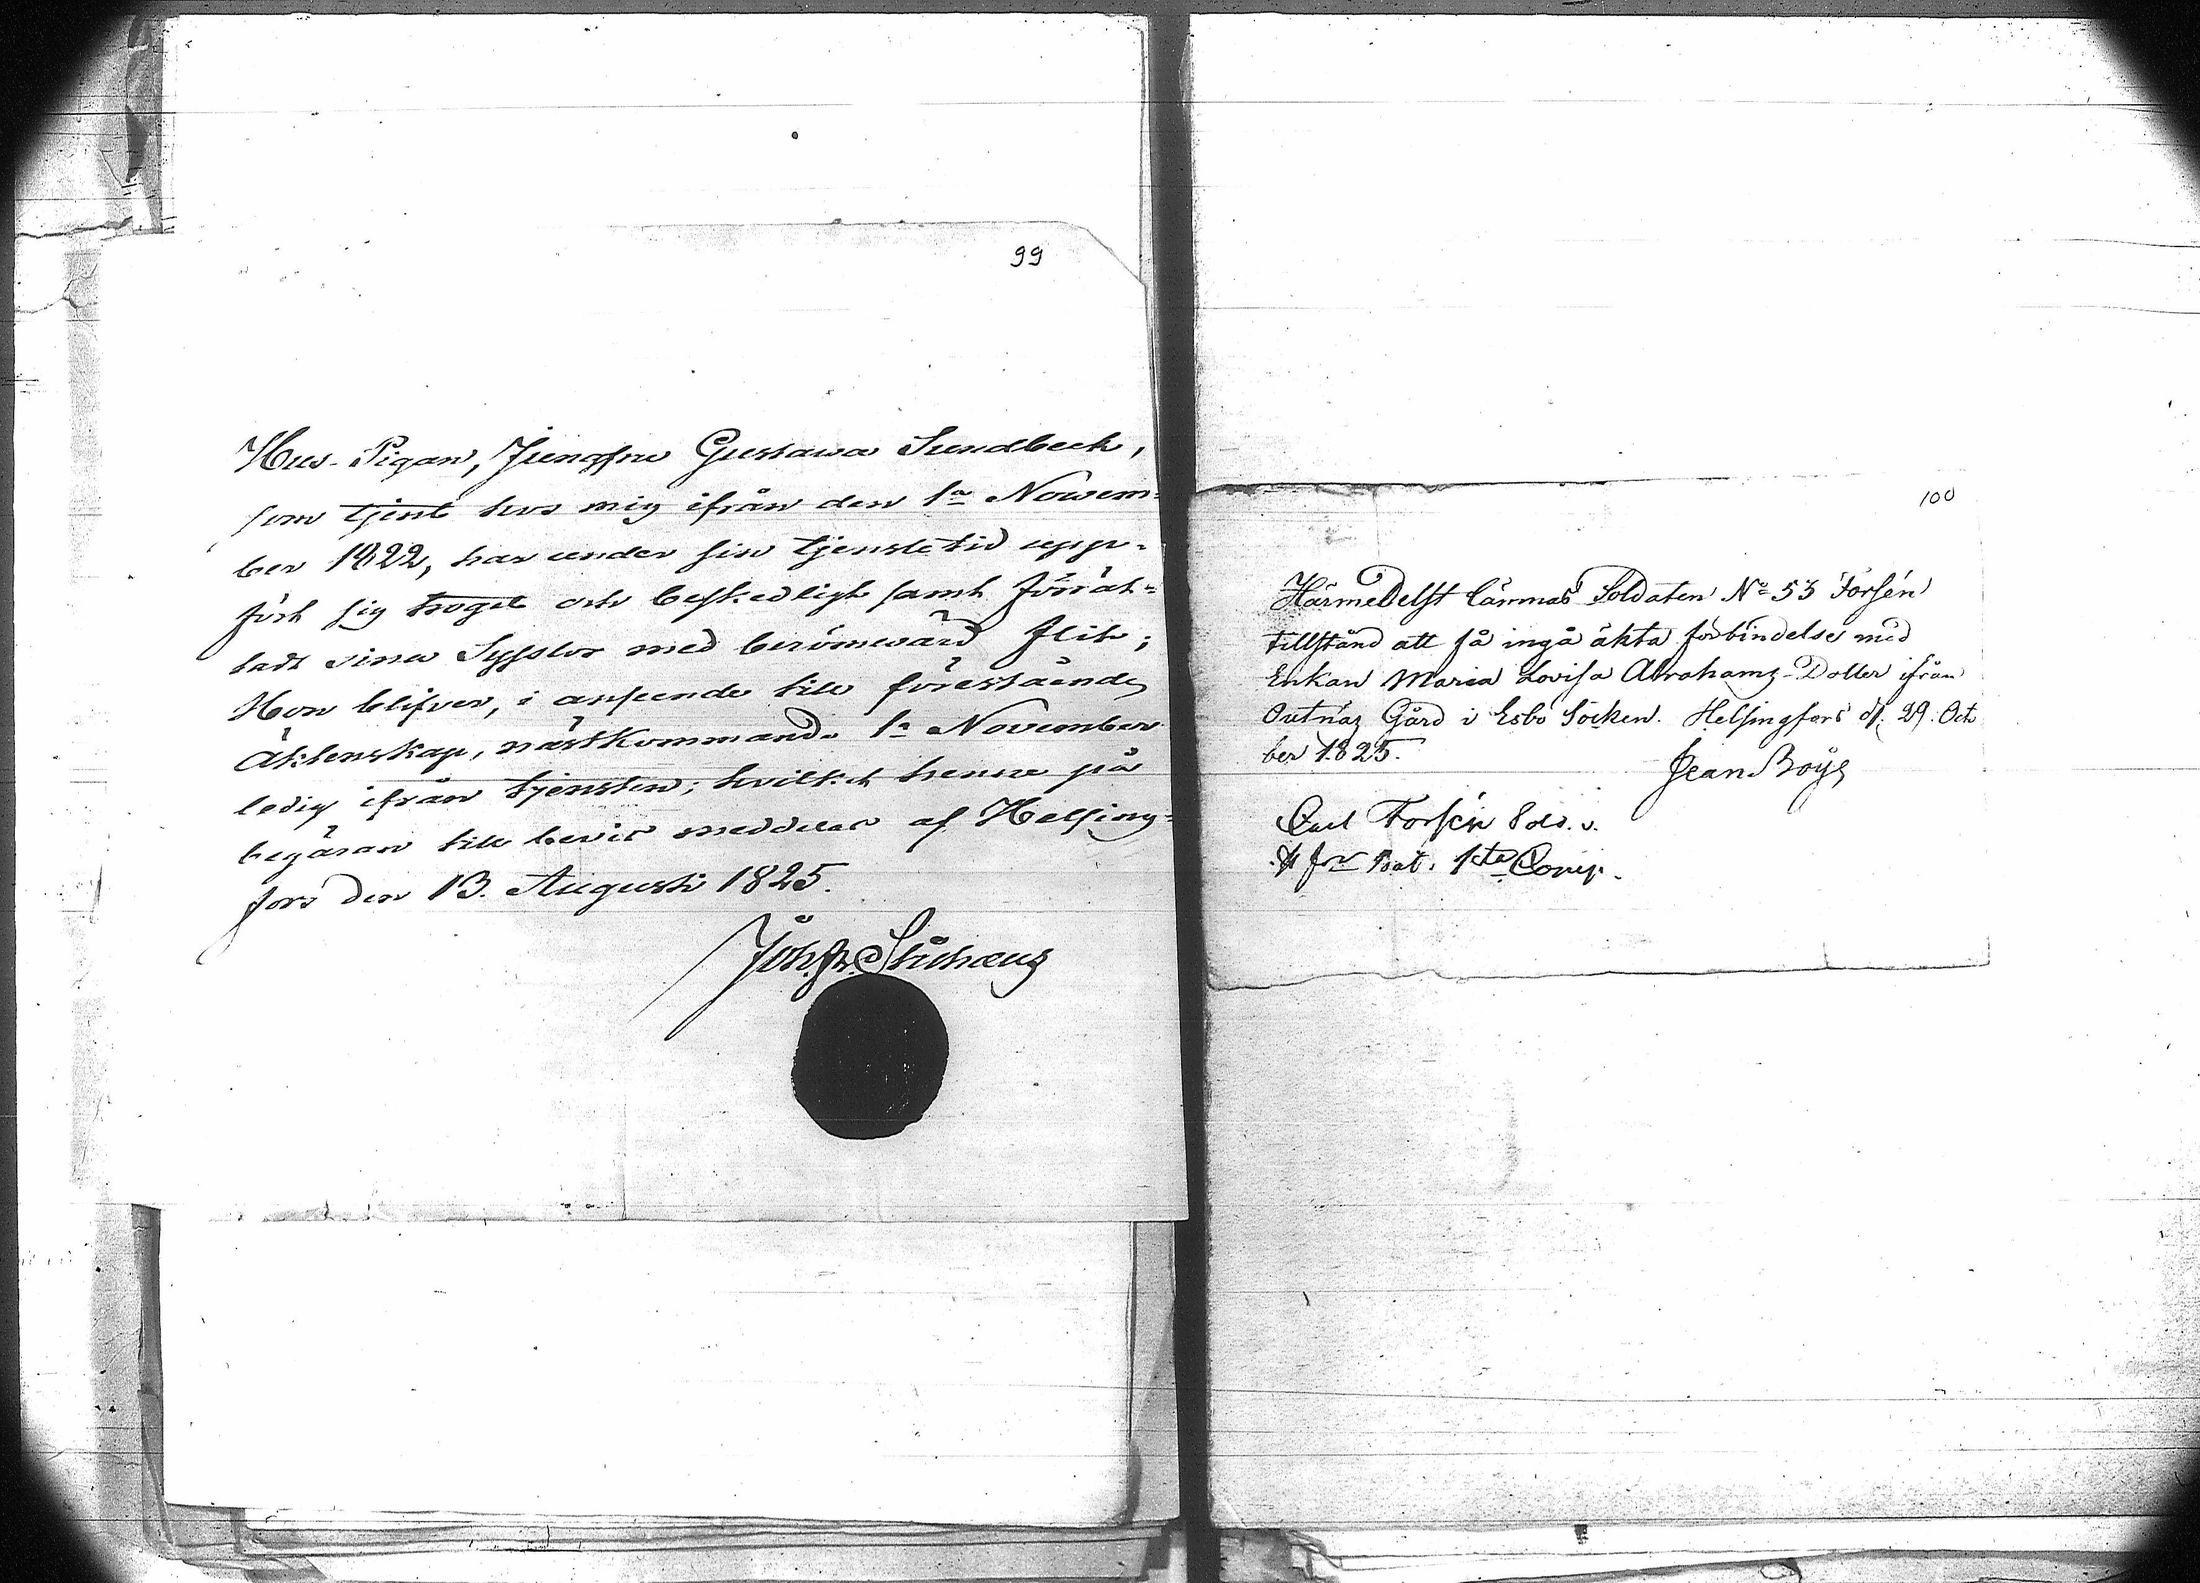 99
Hus-Pigan, Jungfru Gustawa Sundbeck,
som tjent hos mig ifrån den 1a Novem-
ber 1822, har under sin tjenstetid upp-
fört sig troget och beskedligt samt förrät-
tadt sina Sysslor med berömwärd flit;
Hon blifver, i anseende till förestående
Äktenskap, nästkommande 1a November
ledig ifrån tjensten; hvilket henne på
begäran till bevis meddelas af Helsing-
fors den 13. Augusti 1825.
100
Härmedelst lämnas Soldaten No 53 Forsén
tillstånd att få ingå äkta förbindelse med
Enkan Maria Lovisa Abrahams-Dotter ifrån
Outnäs Gård i Esbo Socken. Helsingfors d. 29. Octo
ber 1825.
Jean Boije
Carl Forsén Sold. v.
Bat. 1sta Comp.